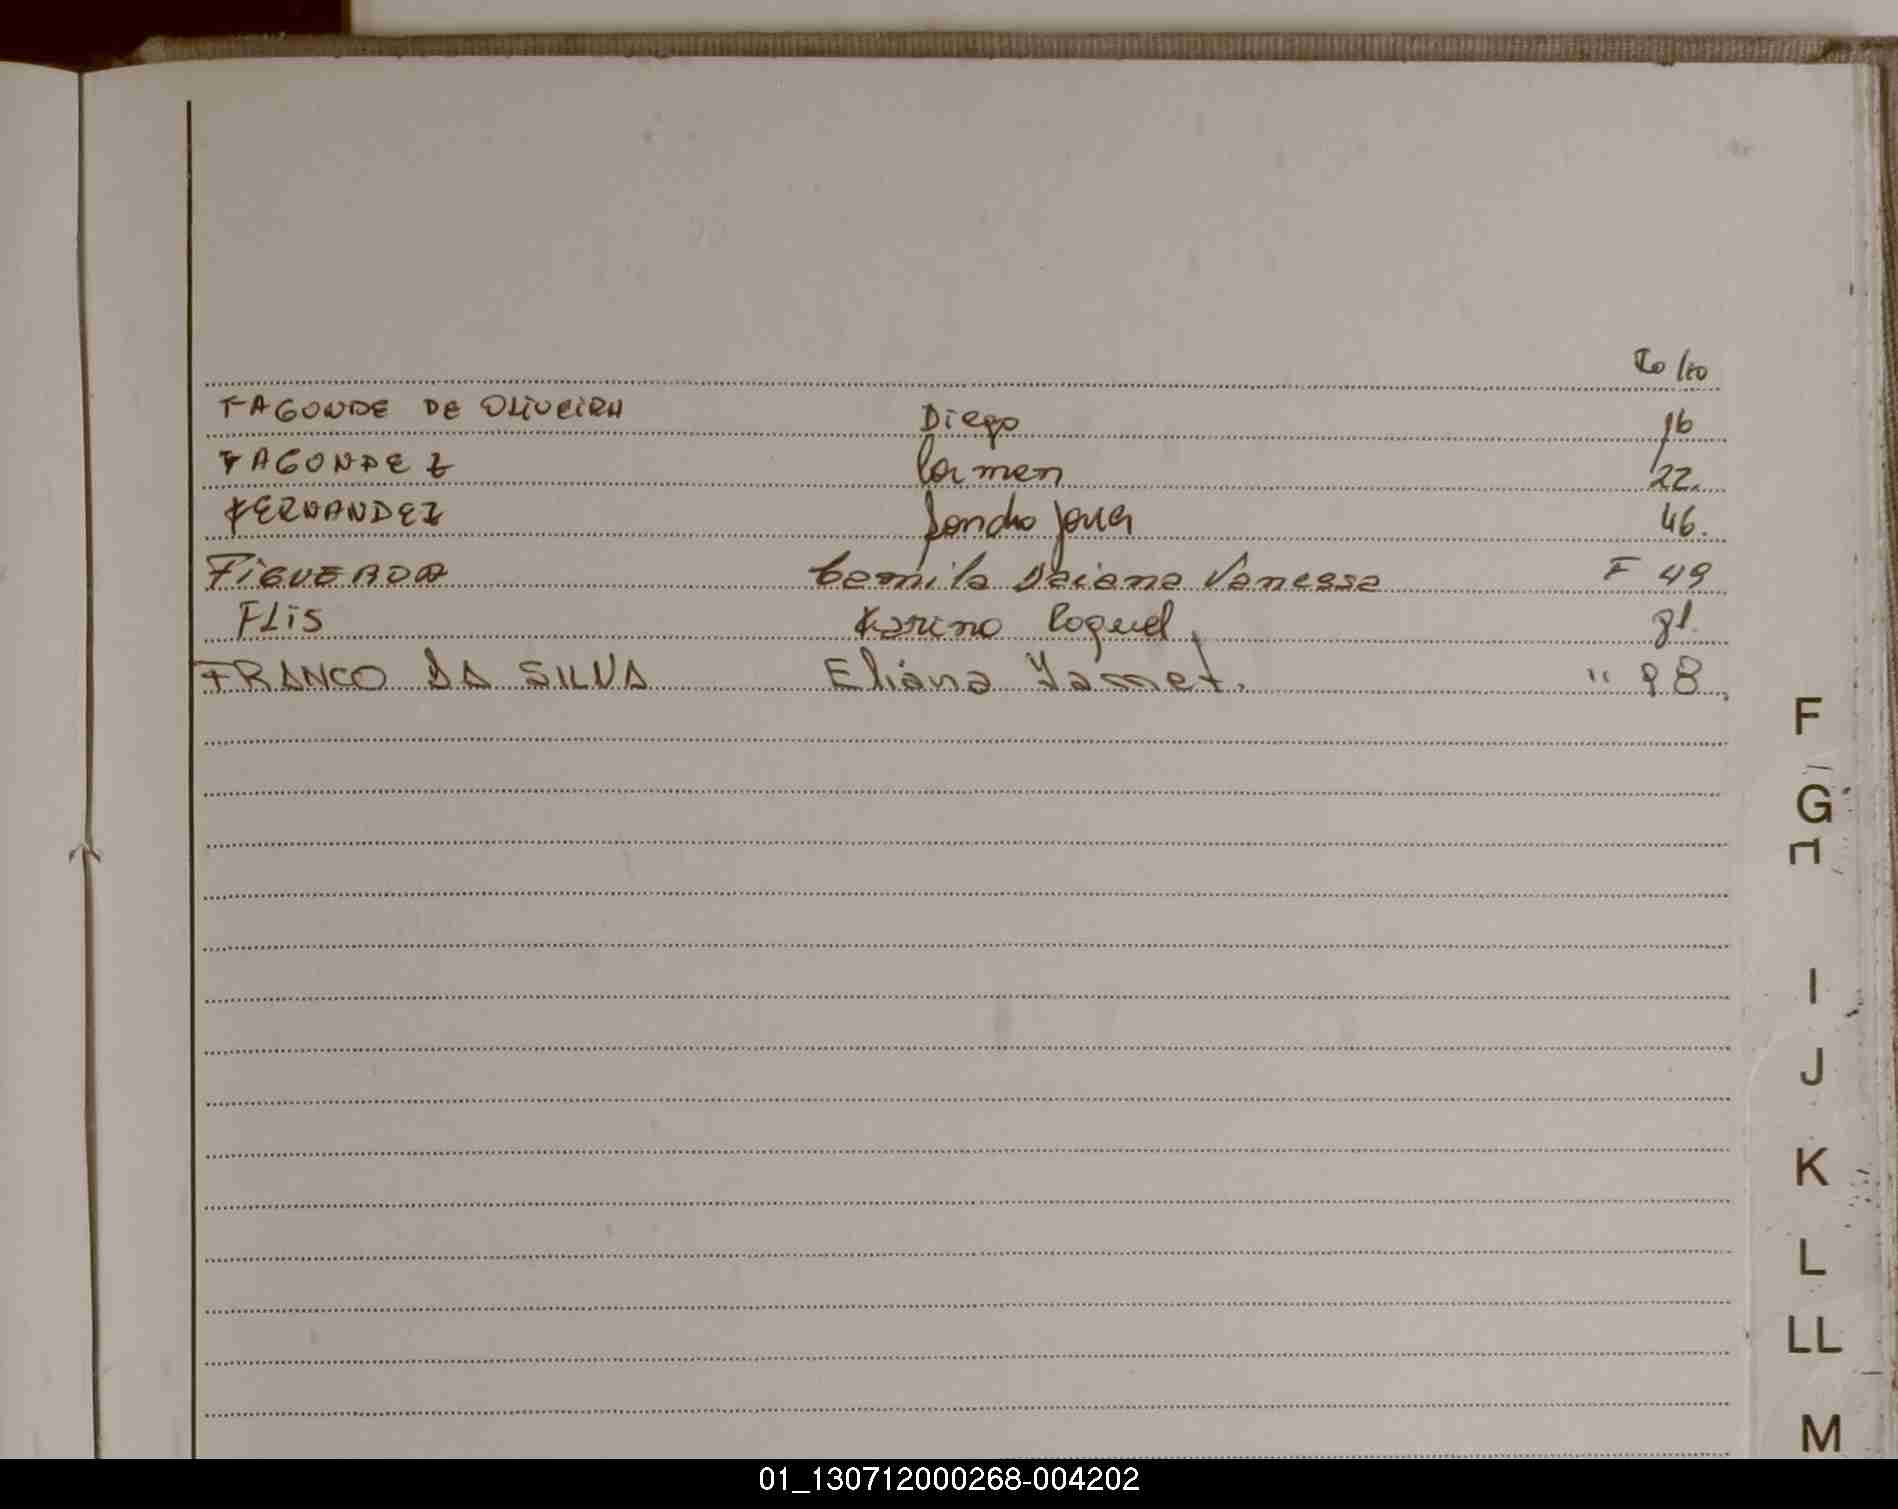 Folio
FAGONDE DE OLIVEIRA Diego 16
FAGONDEZ Carmen 22.
FERNANDEZ Sandra Jovita 46.
FIGUEROA Camila Daiana Vanessa F 49
FLIS Karina Raquel 81.
FRANCO DA SILVA Eliana Yamet. " 98
F
G
I
J
K
L
LL
M
01_130712000268-004202